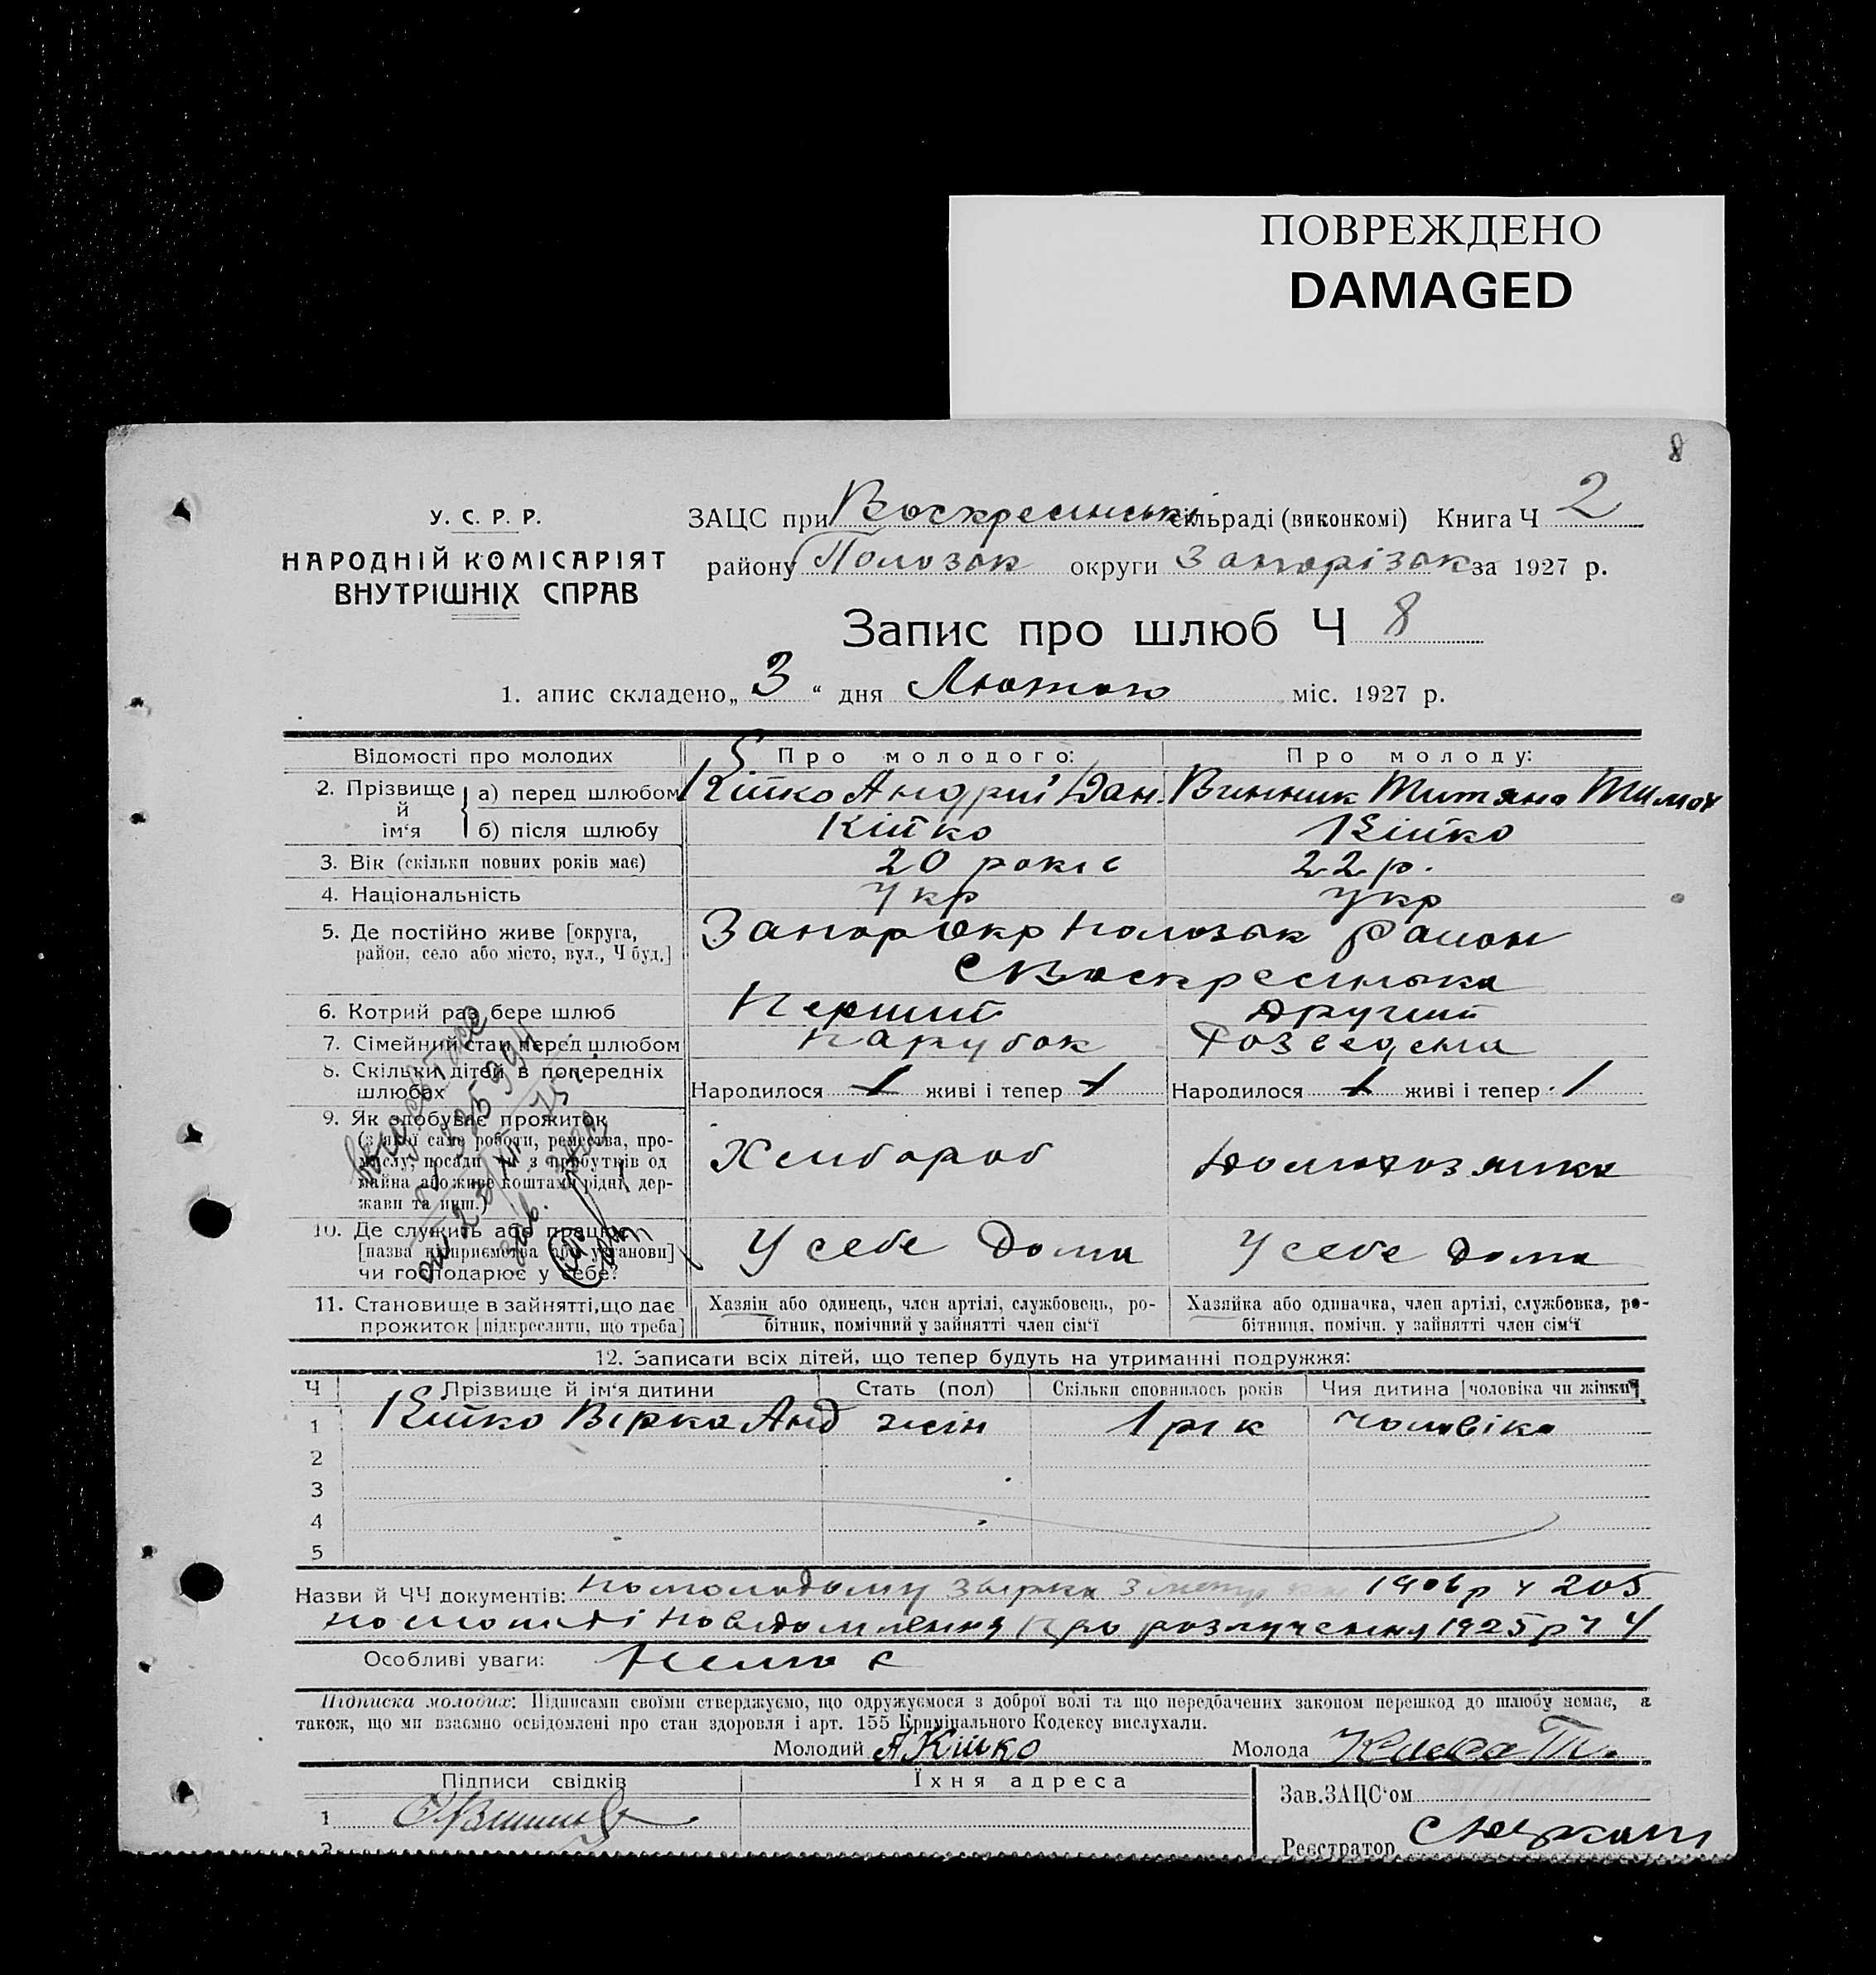 ПОВРЕЖДЕНО
DAMAGED
8
У. С. Р. Р.
НАРОДНІЙ КОМІСАРІЯТ
ВНУТРІШНІХ СПРАВ
ЗАЦС при Воскресинські сільраді (виконкомі) Книга Ч 2
району Полозьк округи Запорізьк за 1927 р.
Запис про шлюб Ч 8
1. апис складено „ 3 “ дня Лютого міс. 1927 р.
Відомості про молодих Про молодого: Про молоду:
2. Прізвище й ім‘я а) перед шлюбом Кійко Андрій Дан. Винник Титяна Тимох
б) після шлюбу Кійко Кійко
3. Вік (скільки повних років має) 20 років 22 р.
4. Національність Укр Укр
5. Де постійно живе [округа, Запор Окр Полозьк Район
район, село або місто, вул., Ч буд.] С Воскресинька
6. Котрий раз бере шлюб Перший Другий
7. Сімейний стан перед шлюбом Парубок Розведена
8. Скільки дітей в попередніх
шлюбах Народилося 1 живі і тепер 1 Народилося 1 живі і тепер 1
9. Як здобуває прожиток
(з якої саме роботи, ремества, про-
мислу, посади чи з прибутків од Хлибороб Домохозяика
майна або живе коштами рідні, дер-
жави та инш.)
10. Де служить або працює
[назва підприємства або установи] У себе Дома У себе Дома
чи господарює у себе?
11. Становище в зайнятті, що дає Хазяїн або одинець, член артілі, службовець, ро- Хазяйка або одиначка, член артілі, службовка, ро-
прожиток [підкреслити, що треба] бітник, помічний у зайнятті член сім‘ї бітниця, помічн. у зайнятті член сім‘ї
12. Записати всіх дітей, що тепер будуть на утриманні подружжя:
Ч Прізвище й ім‘я дитини Стать (пол) Скільки сповнилось років Чия дитина [чоловіка чи жінки]
1 Кійко Вірка Анд жін 1 рік чоловіка
2
3
4
5
Назви й ЧЧ документів: По молодому 1906 р ч 205
по молоді Повідомлення Про розлучення 1925 р ч 4
Особливі уваги: Немає
Підписка молодих: Підписами своїми стверджуємо, що одружуємося з доброї волі та що передбачених законом перешкод до шлюбу немає, а
також, що ми взаємно освідомлені про стан здоровля і арт. 155 Кримінального Кодексу вислухали.
Молодий АКійко Молода
Підписи свідків Їхня адреса
Зав. ЗАЦС‘ом
1
Реєстратор
2